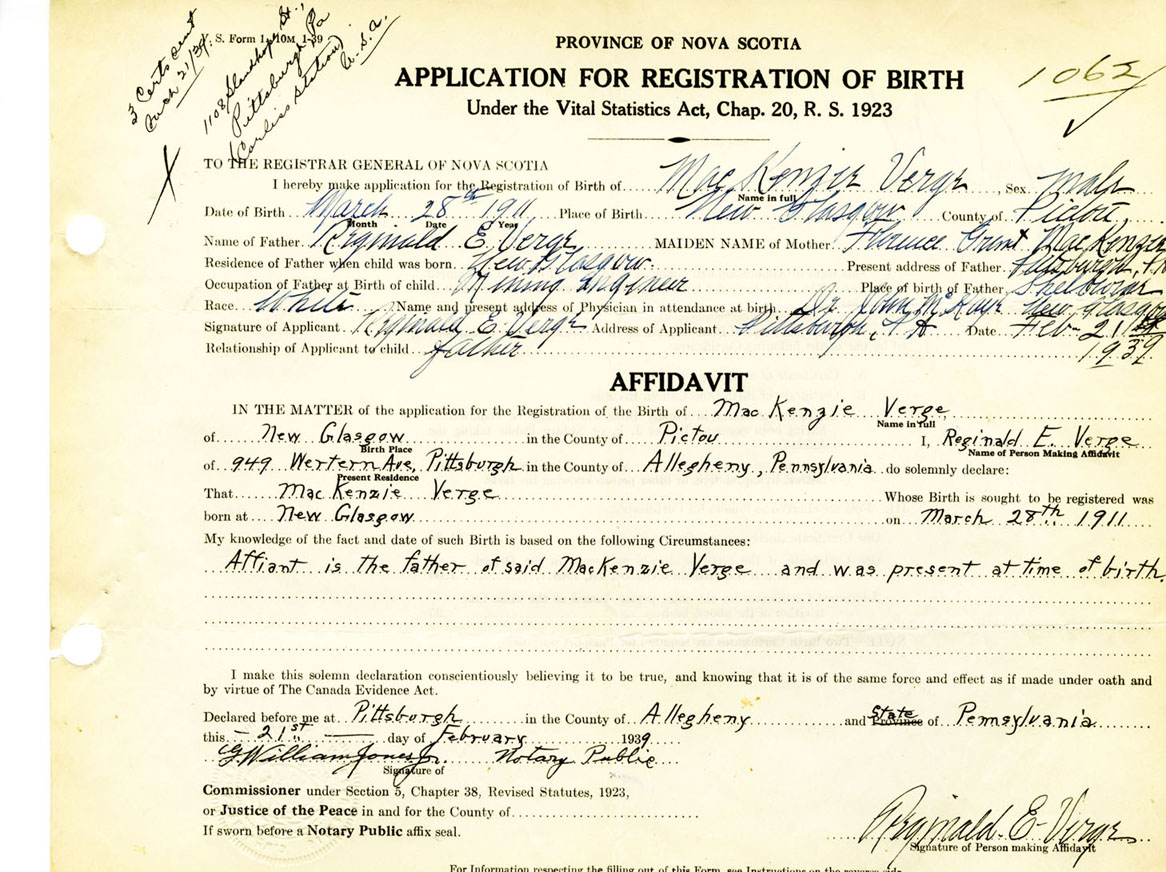 3 Certs sent
March 21/39.
S. Form 1, 10M, 1-39
1108 St.,
Pittsburgh Pa
(Corliss Station)
U.S.A.
PROVINCE OF NOVA SCOTIA
1062
APPLICATION FOR REGISTRATION OF BIRTH
Under the Vital Statistics Act, Chap. 20, R. S. 1923
TO THE REGISTRAR GENERAL OF NOVA SCOTIA
I hereby make application for the Registration of Birth of MacKenzie Verge, Sex male
Name in full
Date of Birth March 28th 1911 Place of Birth New Glasgow County of Pictou,
Month Date Year
Name of Father Reginald E. Verge MAIDEN NAME of Mother Florence Grant MacKenzie
Residence of Father when child was born New Glasgow. Present address of Father Pittsburgh, Pa
Occupation of Father at Birth of child Mining Engineer Place of birth of Father Shelburne
Race White Name and present address of Physician in attendance at birth Dr. John McKay New Glasgow
Signature of Applicant Reginald E. Verge Address of Applicant Pittsburgh, PA Date Feb- 21st
1939
Relationship of Applicant to child father
AFFIDAVIT
IN THE MATTER of the application for the Registration of the Birth of MacKenzie Verge
Name in full
of New Glasgow in the County of Pictou I, Reginald E. Verge
Birth Place Name of Person Making Affidavit
of 949 Western Ave, Pittsburgh in the County of Allegheny, Pennsylvania do solemnly declare:
Present Residence
That MacKenzie Verge Whose Birth is sought to be registered was
born at New Glasgow on March 28th 1911
My knowledge of the fact and date of such Birth is based on the following Circumstances:
Affiant is the father of said MacKenzie Verge and was present at time of birth.
I make this solemn declaration conscientiously believing it to be true, and knowing that it is of the same force and effect as if made under oath and
by virtue of The Canada Evidence Act.
Declared before me at Pittsburgh in the County of Allegheny and State Province of Pennsylvania
this 21st day of February 1939
G. William Jones Jr. Notary Public
Signature of
Commissioner under Section 5, Chapter 38, Revised Statutes, 1923,
or Justice of the Peace in and for the County of
If sworn before a Notary Public affix seal.
Reginald E. Verge
Signature of Person making Affidavit
For Information respecting the filling out of this Form, see Instructions on the reverse side